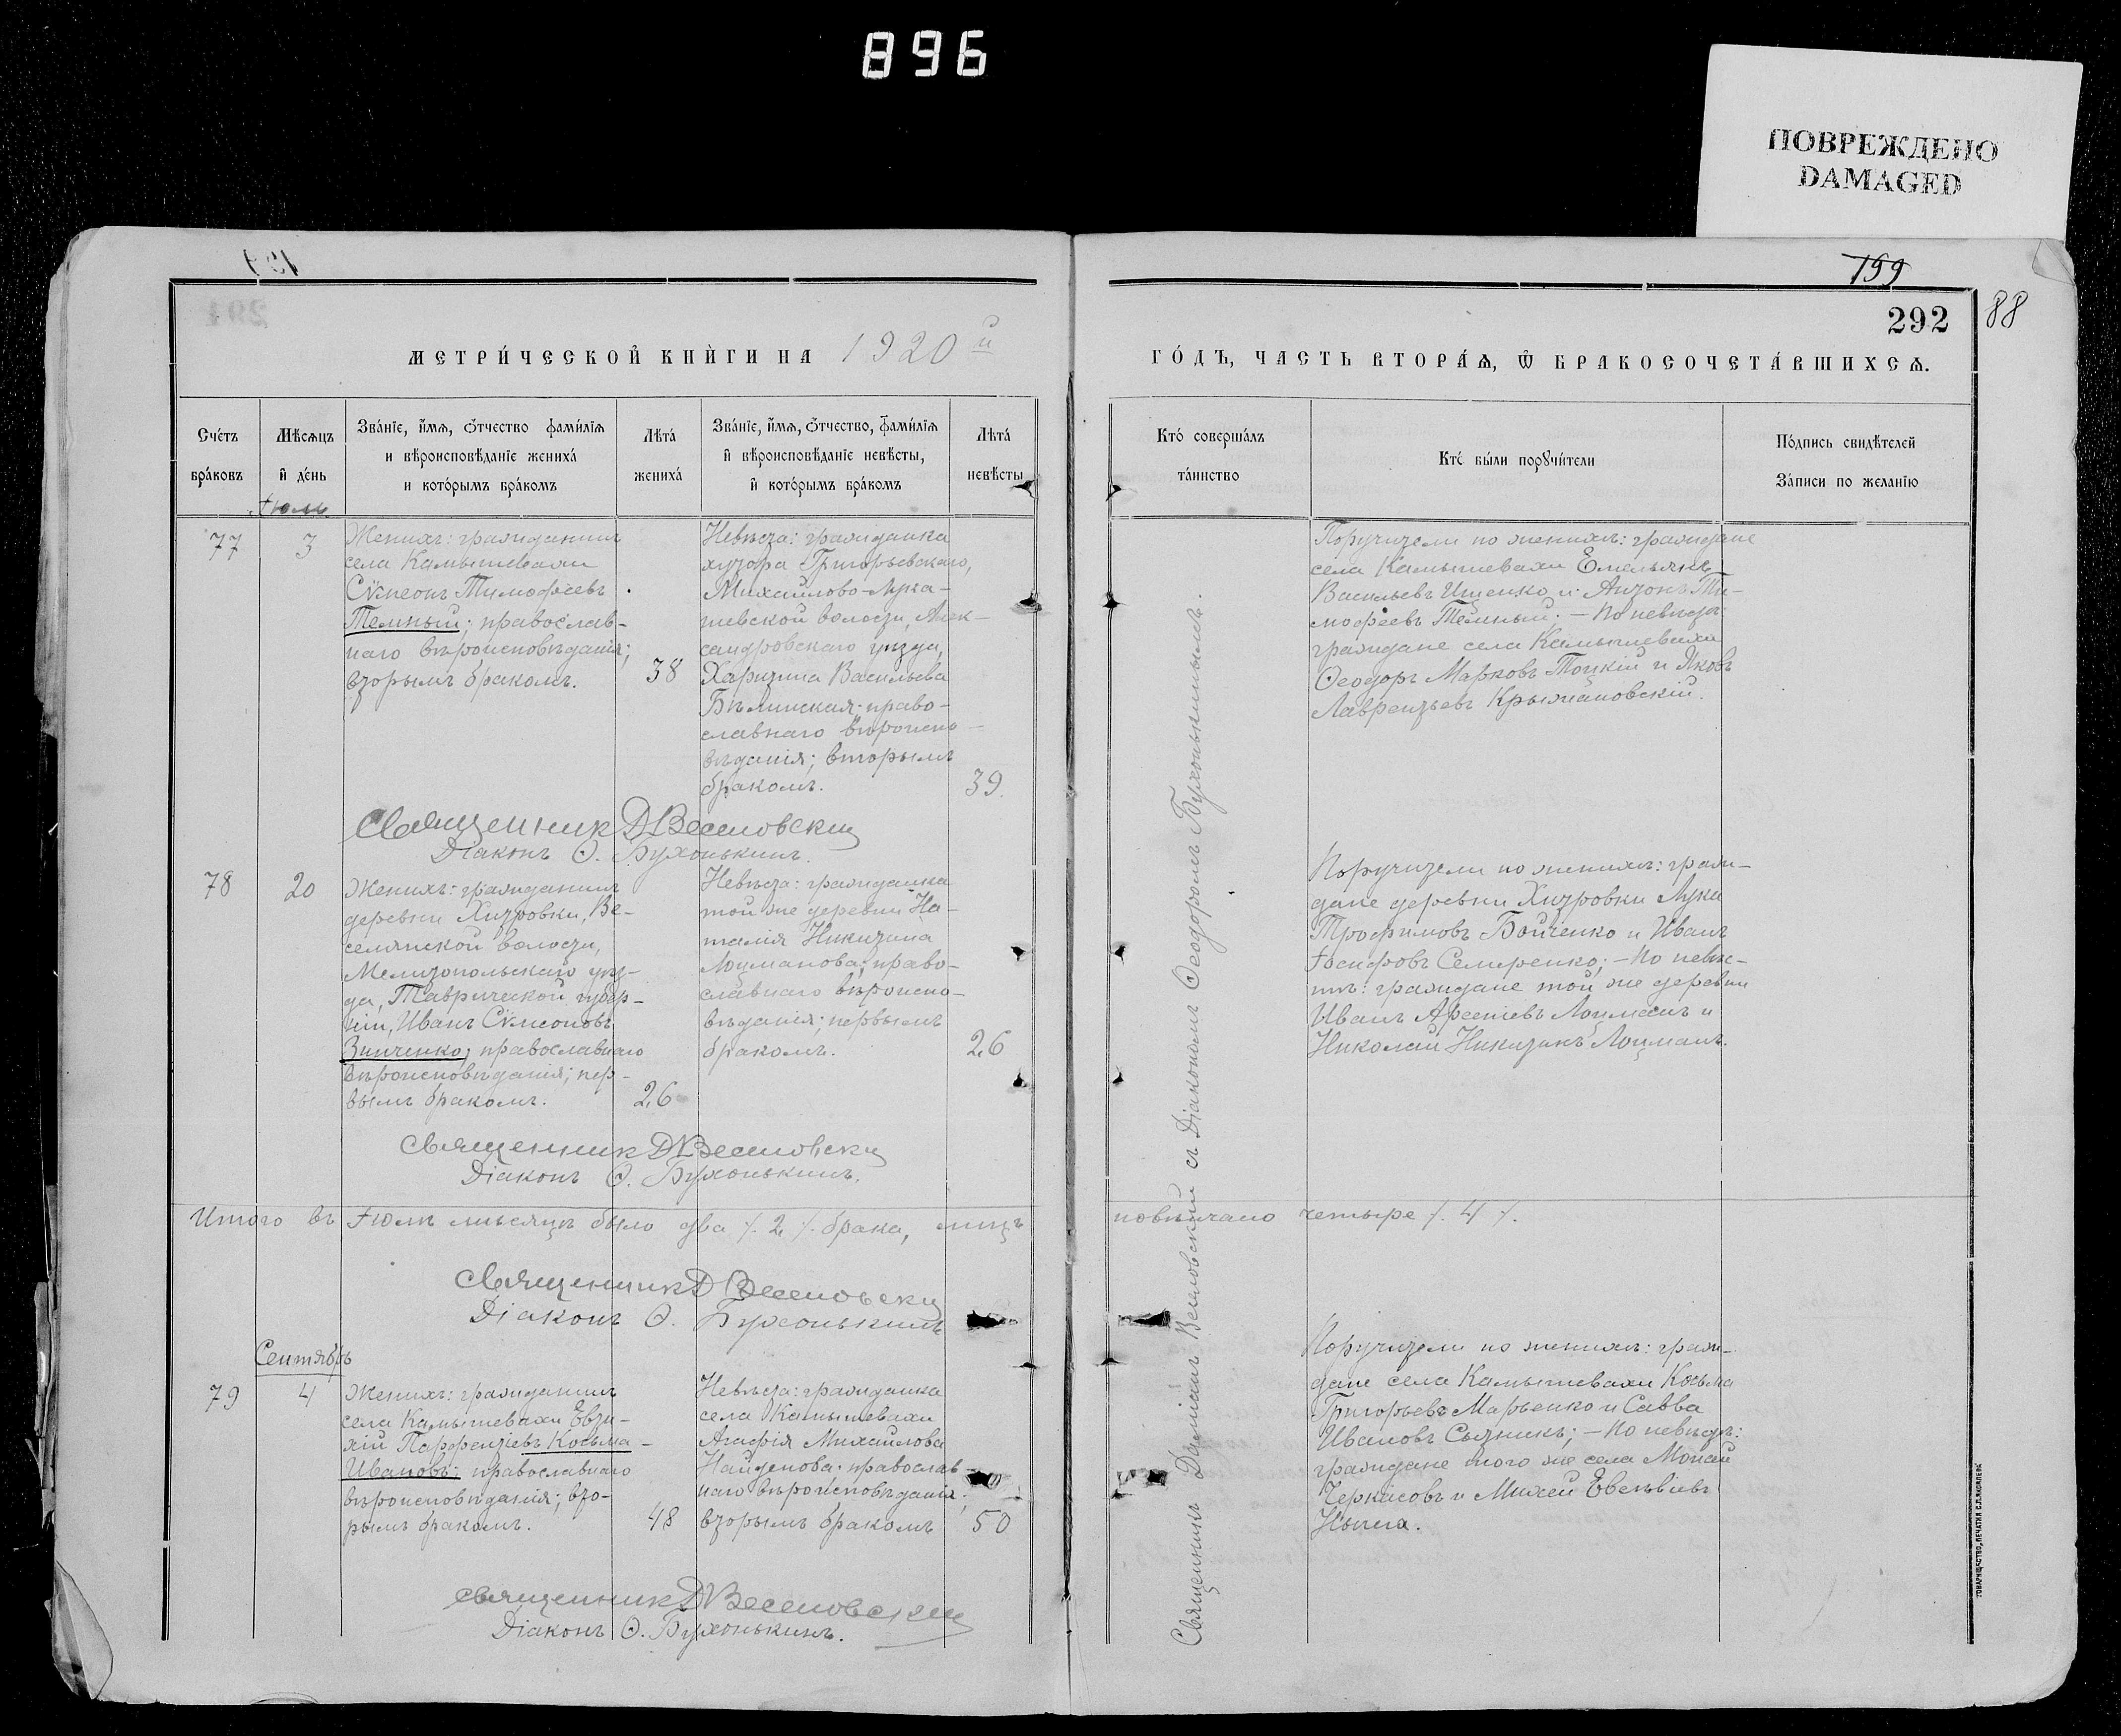 896
ПОВРЕЖДЕНО
DAMAGED
199
292
88
МЕТРИ́ЧЕСКОЙ КНИ́ГИ НА 1920 й
ГО́ДЪ, ЧАСТЬ ВТОРА́Ѧ, Ѿ БРАКОСОЧЕТА́ВШИХСѦ.
Сче́тъ
бра́ковъ
Мѣ́сѧцъ
и҆ де́нь
Зва́нїе, и҆́мѧ, ѻ҆́тчество фами́лїѧ
и вѣроисповѣ́данїе жениха́
и кото́рымъ бра́комъ
Лѣта́
жениха́
Зва́нїе, и҆́мѧ, ѻ҆́тчество, фами́лїѧ
и҆ вѣроисповѣ́данїе невѣ́сты,
и҆ кото́рымъ бра́комъ
Лѣта́
невѣ́сты
Кто́ соверша́лъ
та́инство
Кто́ бы́ли порꙋчи́тели
По́дпись свидѣ́телей
За́писи по жела́нїю
Іюль
77
3
Женихъ: гражданинъ
села Камышевахи
Сѵмеонъ Тимоѳеевъ
Темный; православ-
наго вѣроисповѣданія;
вторымъ бракомъ.
38
Невѣста: гражданка
хутора Григорьевскаго,
Михайлово-Лука-
шевской волости, Алек-
сандровскаго уѣзда,
Харитина Васильева
Бѣлинская; право-
славнаго вѣроиспо-
вѣданія; вторымъ
бракомъ.
39.
Поручители по женихѣ: граждане
села Камышевахи Емельянъ
Васильевъ Ищенко и Антонъ Ти-
моѳеевъ Темный; – По невѣстѣ:
граждане села Камышевахи
Ѳеодоръ Марковъ Тоцкій и Яковъ
Лаврентьевъ Крыжановскій.
Священник Д Веселовский
Діаконъ Ѳ. Бухонькинъ.
78
20
Женихъ: гражданинъ
деревни Хитровки, Ве-
селянской волости,
Мелитопольскаго уѣз-
да, Таврической губер-
ніи, Иванъ Сѵмеоновъ
Зинченко; православнаго
вѣроисповѣданія; пер-
вымъ бракомъ.
26
Невѣста: гражданка
той же деревни На-
талія Никитина
Лоцманова; право-
славнаго вѣроиспо-
вѣданія; первымъ
бракомъ.
26
Поручители по женихѣ: граж-
дане деревни Хитровки Лука
Трофимовъ Бойченко и Иванъ
Іосифовъ Семиренко; – По невѣс-
тѣ: граждане той же деревни
Иванъ Арсеніевъ Лоцманъ и
Николай Никитинъ Лоцманъ.
Священник Д Веселовский
Діаконъ Ѳ. Бухонькинъ.
Итого въ Іюлѣ мѣсяцѣ было два /. 2 /. брака, лицъ повѣнчано четыре /. 4 /.
Священник Д Веселовский
Діаконъ Ѳ. Бухонькинъ
Сентябрь
79
4
Женихъ: гражданинъ
села Камышевахи Евти-
хій Парфентіевъ Косьма-
Ивановъ; православнаго
вѣроисповѣданія; вто-
рымъ бракомъ.
48
Невѣста: гражданка
села Камышевахи
Агафія Михайлова
Найденова; православ-
наго вѣроисповѣданія;
вторымъ бракомъ
50
Поручители по женихѣ: граж-
дане села Камышевахи Косьма
Григорьевъ Марьенко и Савва
Ивановъ Сытникъ; – По невѣстѣ:
граждане того же села
Черкасовъ и Михей
Священник Д Веселовский
Діаконъ Ѳ. Бухонькинъ.
Священникъ Даміанъ Веселовский съ Діакономъ Ѳеодоромъ Бухонькинымъ.
ТОВАРИЩЕСТВО „ПЕЧАТНЯ С.П.ЯКОВЛЕВА“